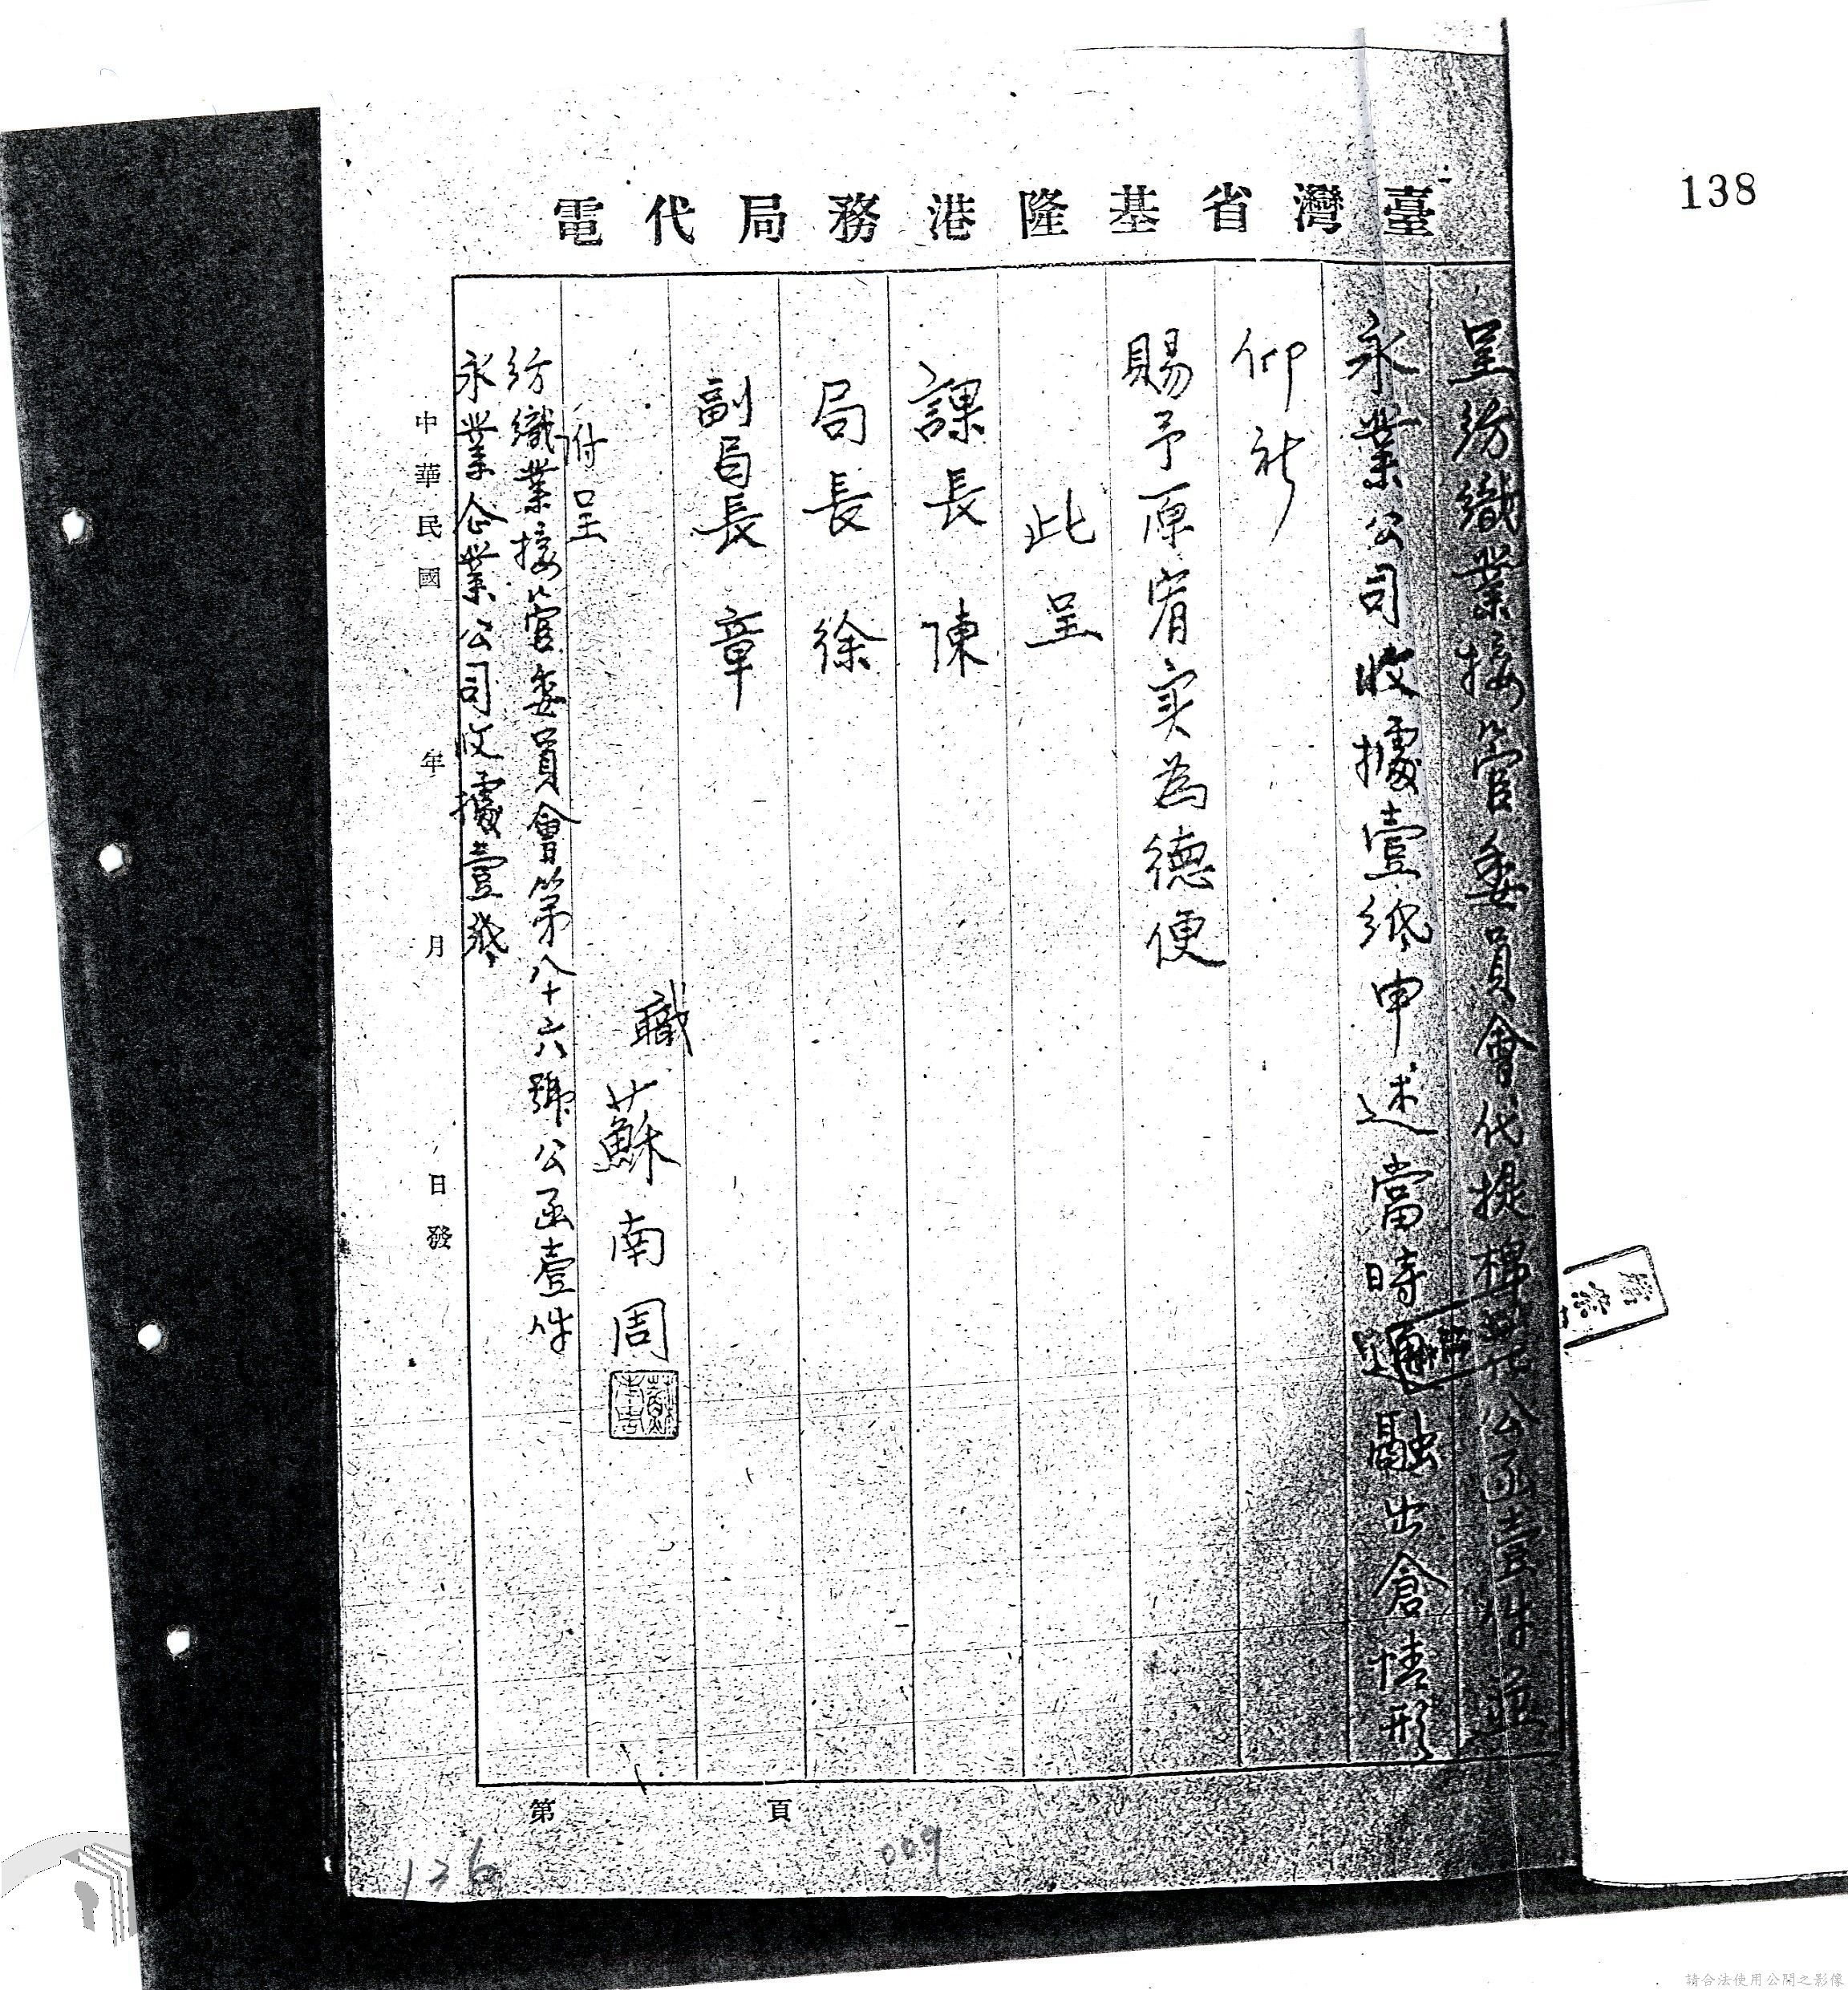 138
臺灣省基隆港務局代電
呈紡織業接管委員會代提樺公函壹件並
永業公司收據壹紙申述當時通融出倉情形
仰祈
賜予原宥实為德便
此呈
課長陳
局長徐
副局長章
職蘇南周
附呈
紡織業接管委員會第八十六號公函壹件
永業企業公司收據壹紙
中華民國 年 月 日發
第 頁
136
009
請合法使用公開之影像